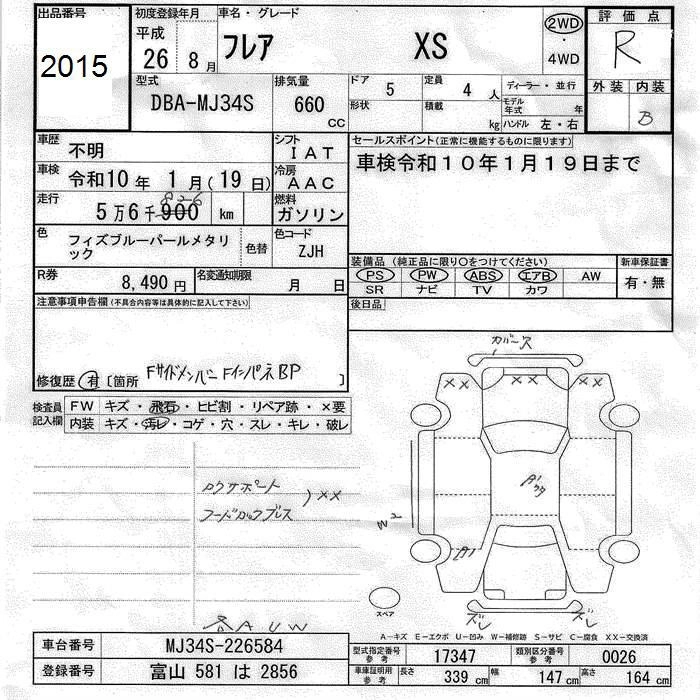 出品番号
2015
初度登録年月
平成
26 8月
車名・グレード
フレア XS
2WD
4WD
評価点
R
外装 内装
B
型式
DBA-MJ34S
排気量
660
CC
ドア
5
定員
4 人
形状
積載
kg
ディーラー・並行
モデル年式 年
ハンドル 左・右
車歴
不明
シフト
IAT
車検
令和10年 1月(19日)
冷房
AAC
走行
826
5万6千900 km
燃料
ガソリン
色
フィズブルーパールメタリック
色替
色コード
ZJH
R券
8,490円
名変通知期限
月 日
セールスポイント(正常に機能するものに限ります)
車検令和10年1月19日まで
装備品(純正品に限り〇をつけてください)
PS PW ABS エアB AW
SR ナビ TV カワ
新車保証書
有・無
後日品
注意事項申告欄(不具合内容等は具体的に記入して下さい)
修復歴 有 〔箇所 FサイドメンバーFインパネBP 〕
検査員記入欄
FW キズ・飛石・ヒビ割・リペア跡・×要
内装 キズ・汚レ・コゲ・穴・スレ・キレ・破レ
カバース
×× ×× ××
コアサポート
フードロックブレス
)××
A'
A'
スペア
ズレ ズレ
各AUW
A-キズ E-エクボ U-凹み W-補修跡 S-サビ C-腐食 XX-交換済
車台番号 MJ34S-226584
登録番号 富山 581 は 2856
型式指定番号参考 17347
類別区分番号参考 0026
車庫証明用参考 長さ 339 cm 幅 147 cm 高さ 164 cm